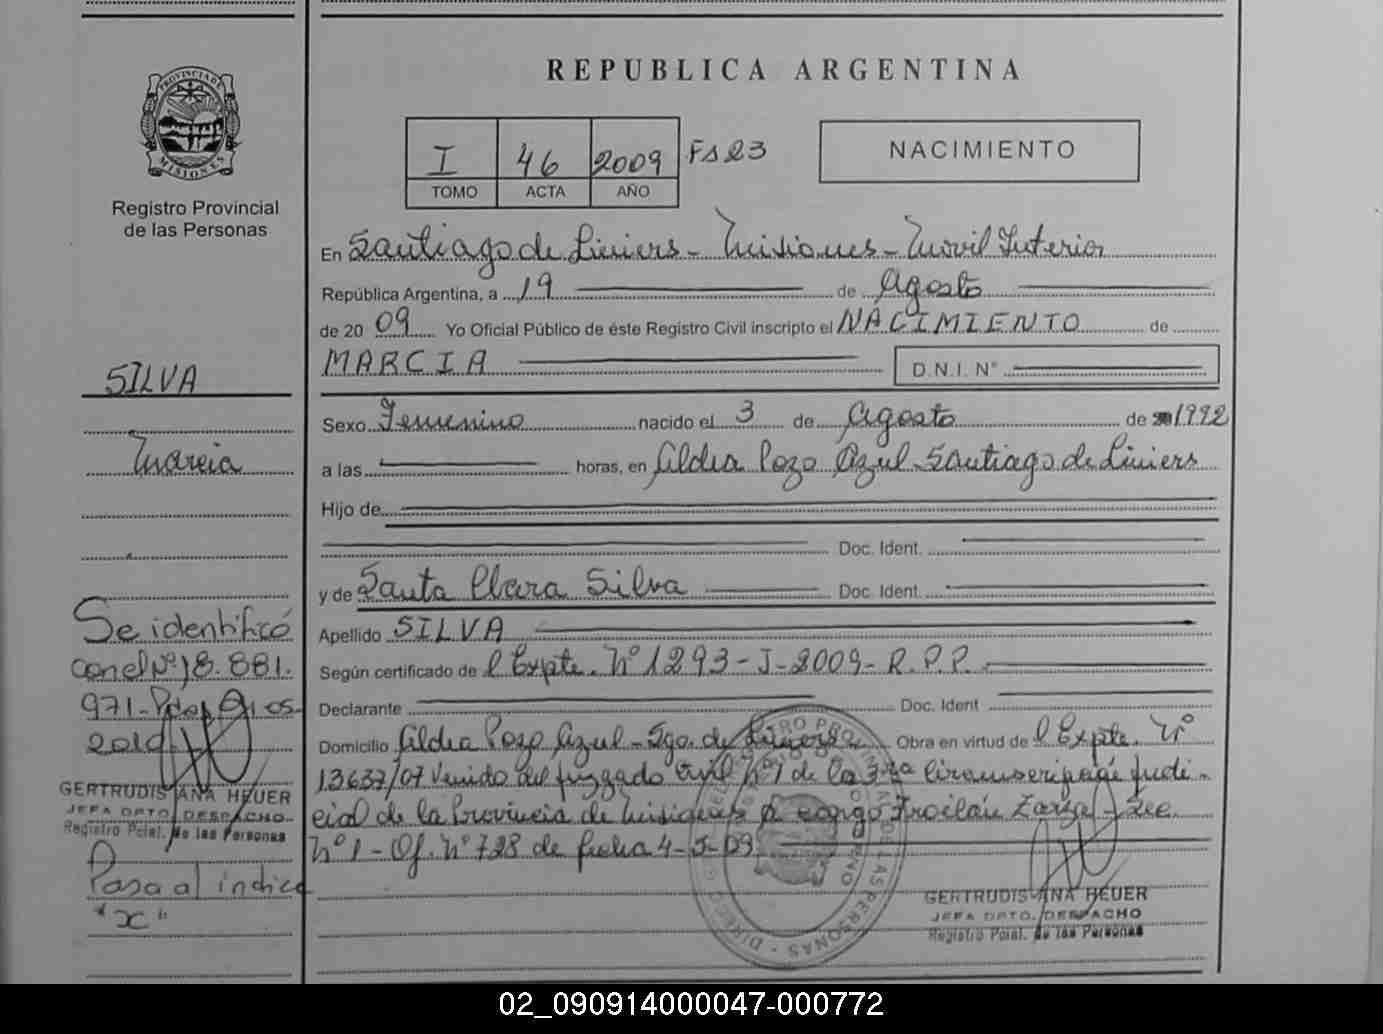 REPUBLICA ARGENTINA
PROVINCIA DE
MISIONES
Registro Provincial
de las Personas
I 46 2009 Fs 23
TOMO ACTA AÑO
NACIMIENTO
En Santiago de Liniers - Misiones - Movil Interior
República Argentina, a 19 de Agosto
de 2009 Yo Oficial Público de éste Registro Civil inscripto el NACIMIENTO de
MARCIA D.N.I. N°
Sexo Femenino nacido el 3 de Agosto de 1992
a las horas, en Aldea Pozo Azul Santiago de Liniers
Hijo de
Doc. Ident.
y de Santa Clara Silva Doc. Ident.
Apellido SILVA
Según certificado de l Expte. N° 1293-J-2009-R.P.P.
Declarante Doc. Ident
Domicilio Aldea Pozo Azul - Sgo. de Liniers Obra en virtud de l Expte. N°
13637/07 Venido del Juzgado Civil N° 1 de la 3ra Circunscripción Judi-
cial de la Provincia de Misiones a cargo Froilán Zarza - Sec.
N° 1 - Of. N° 728 de fecha 4-5-09
GERTRUDIS ANA HEUER
JEFA DPTO. DESPACHO
Registro Pcial. de las Personas
SILVA
Marcia
Se identificó
con el N° 18.881.
971- Pdas 
2010
GERTRUDIS ANA HEUER
JEFA DPTO. DESPACHO
Registro Pcial. de las Personas
Pasa al indice
"X"
02_090914000047-000772